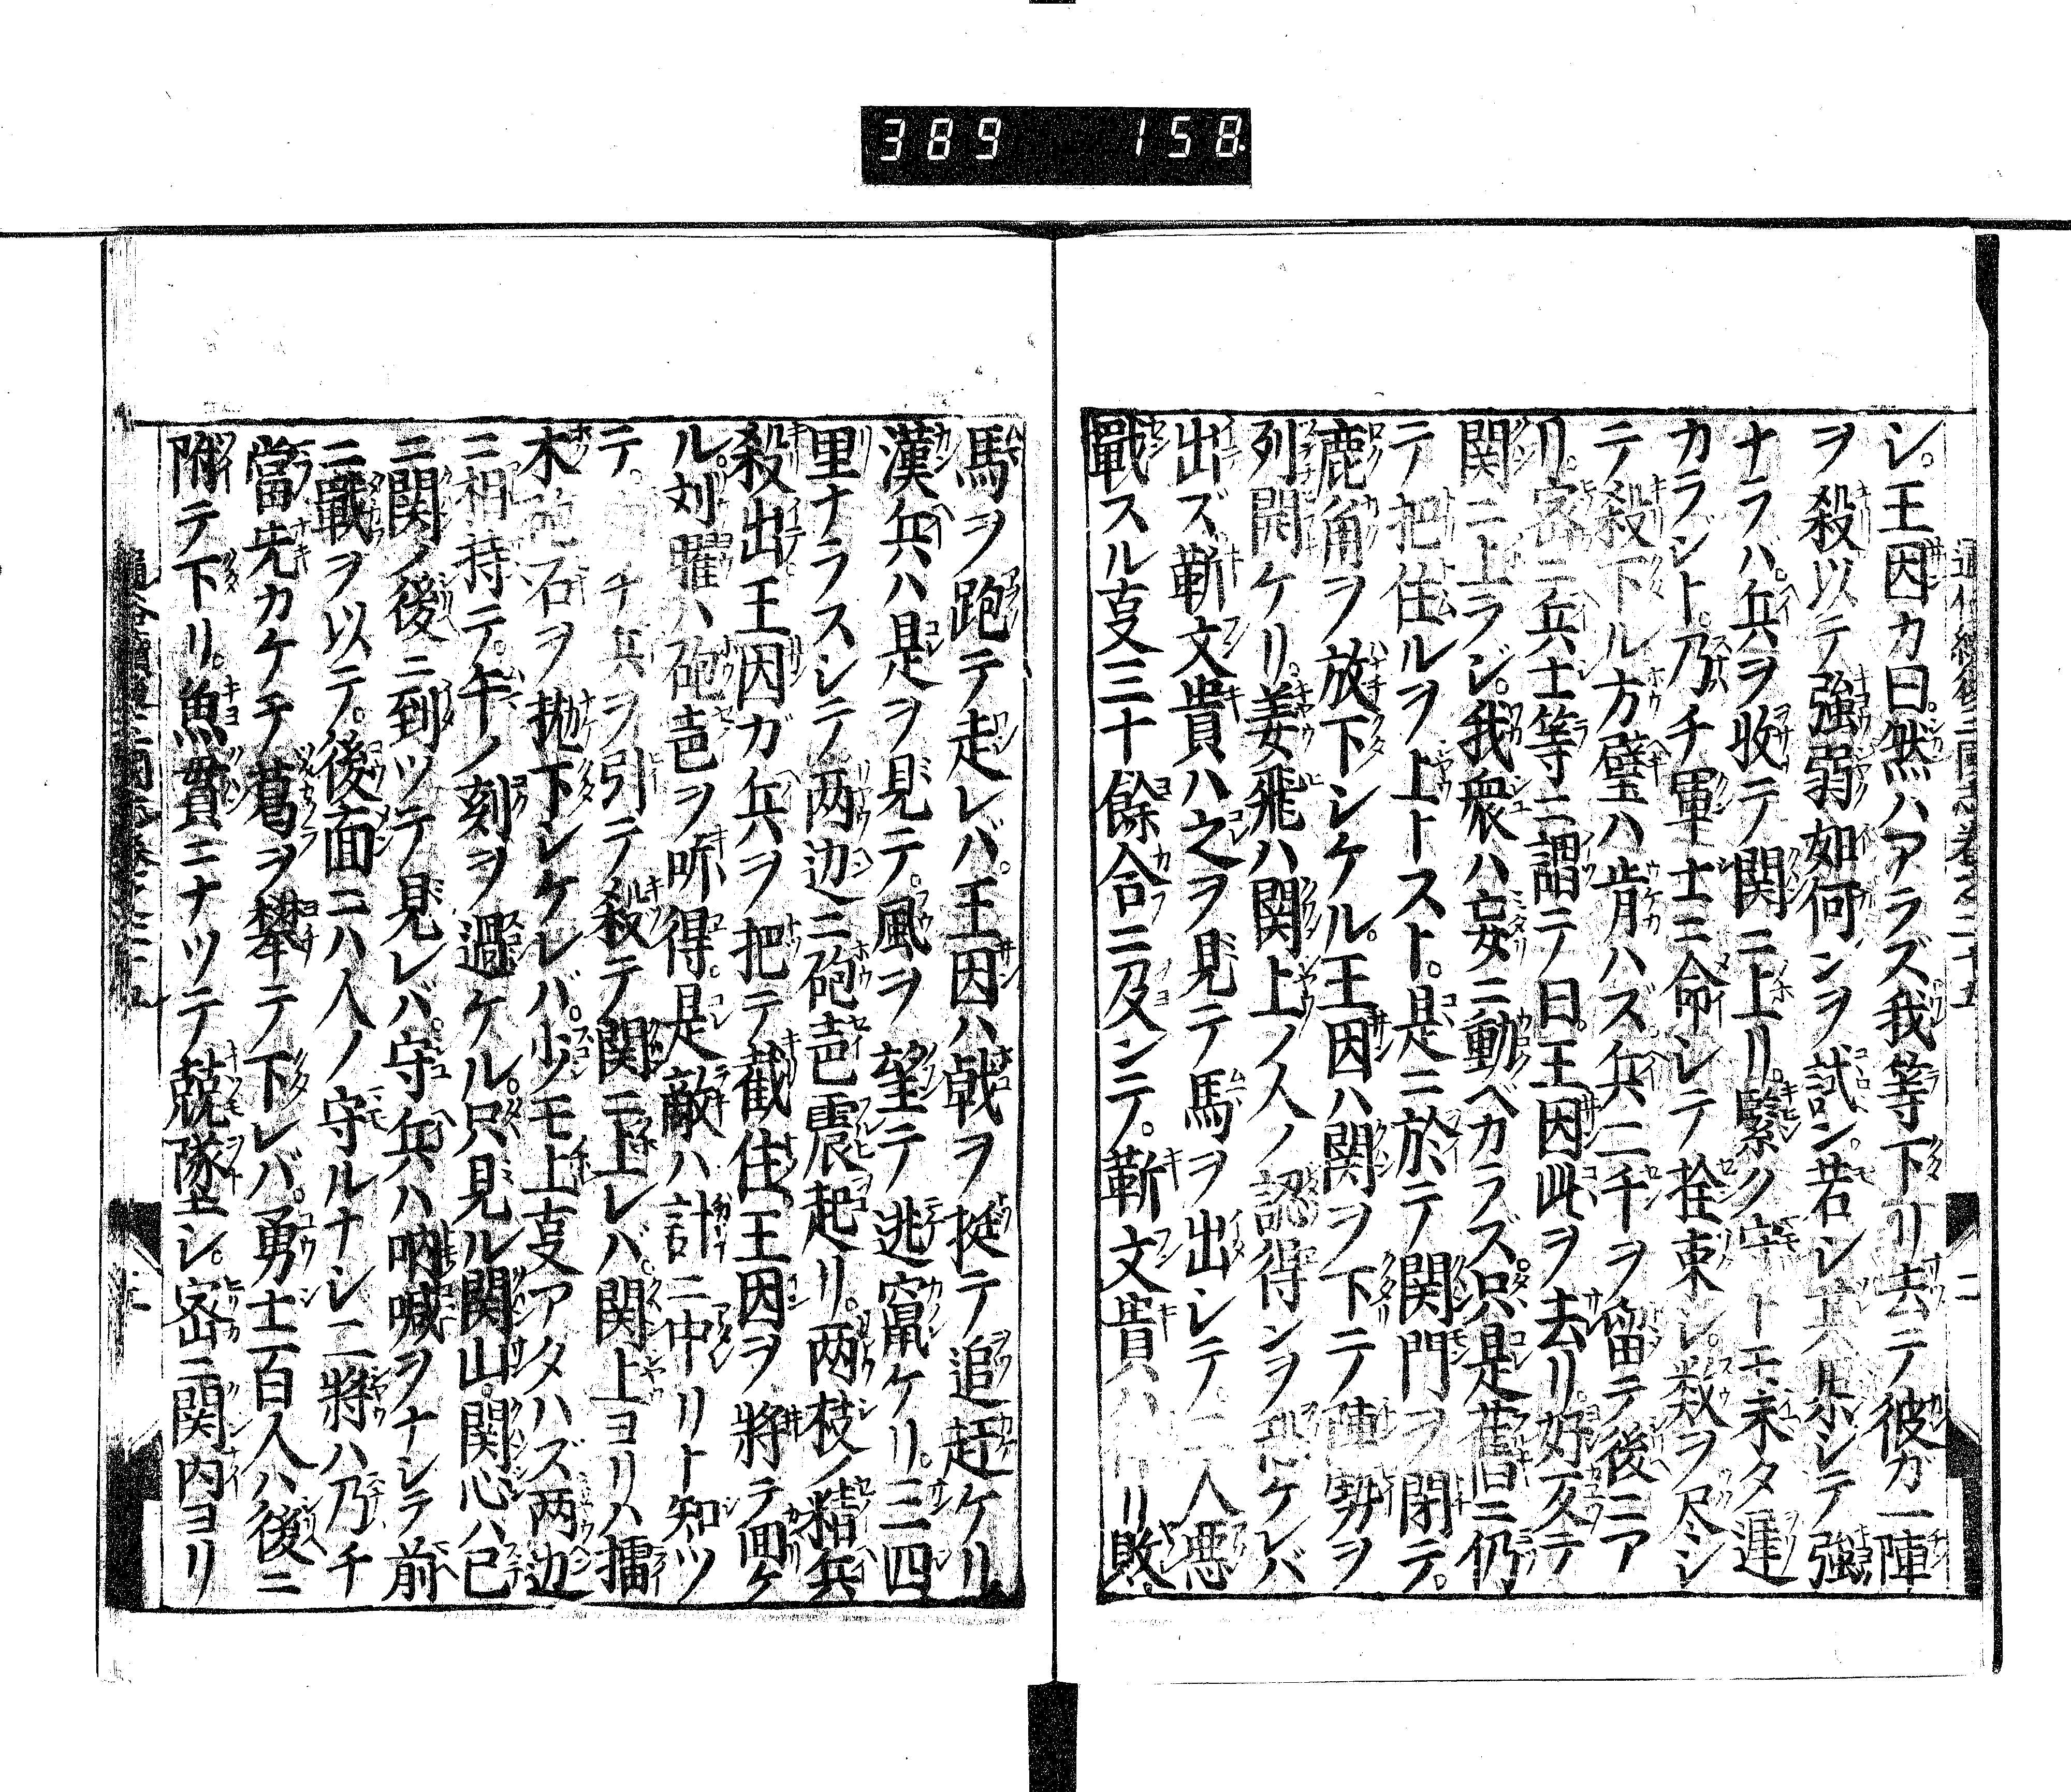 389 158
シ。王因カ曰。然ハアラズ我等下リ去テ彼カ一陣
ヲ殺以テ強弱如何ンヲ試ン。若シ其ル求シテ強
ナラハ。兵ヲ收テ関ニ上リ。緊ク守トモ未タ遅
カラント。乃チ軍士ニ命シテ拴束シ。数ヲ尽シ
テ殺下ル方璧ハ肯ハズ兵二千ヲ留テ後ニア
リ。密ニ兵士等ニ謂テ曰。王因此ヲ去リ。好歹テ
関ニ上ラジ。我衆ハ妄ニ動ベカラズ。只是舊旧ニ仍
テ把住ルヲ上トスト。是ニ於テ関門ヲ閉テ。
鹿角ヲ放下シケル。王因ハ関ヲ下テ陣勢ヲ
列開ケリ。姜飛ハ関上ノ人ノ認得ンヲ恐ケレバ
出ズ。靳文貴ハ之ヲ見テ馬ヲ出シテ。二人悪
戰スル㕝三十餘合ニ及ンテ。靳文貴ハ リ敗
馬ヲ跑テ走レバ。王因ハ戟ヲ挺テ追赶ケリ
漢兵ハ是ヲ見テ。風ヲ望テ逃竄ケリ。三四
里ナラスシテ两辺ニ砲㐵震起リ。两枝ノ精兵
殺出王因ガ兵ヲ把テ截住。王因ヲ將テ囬ケ
ル。刘曜ハ砲㐵ヲ听得。是敵ハ計ニ中リト知ツ
テ。 チ兵ヲ引テ殺テ関ニ上レバ。関上ヨリハ擂
木砲石ヲ抛下シケレバ。少モ上㕝アタハズ两辺
ニ相持テ。午ノ刻ヲ過ケル。只見ル関山関心ハ已
ニ関ノ後ニ到ツテ見レバ。守兵ハ吶喊ヲナシテ前
ニ戰ヲ以テ。後面ニハ人ノ守ルナシ二將ハ乃チ
當先カケチ葛ヲ攀テ下レバ。勇士二百人ハ後ニ
附テ下リ。魚貫ニナツテ競墜シ。密ニ関内ヨリ